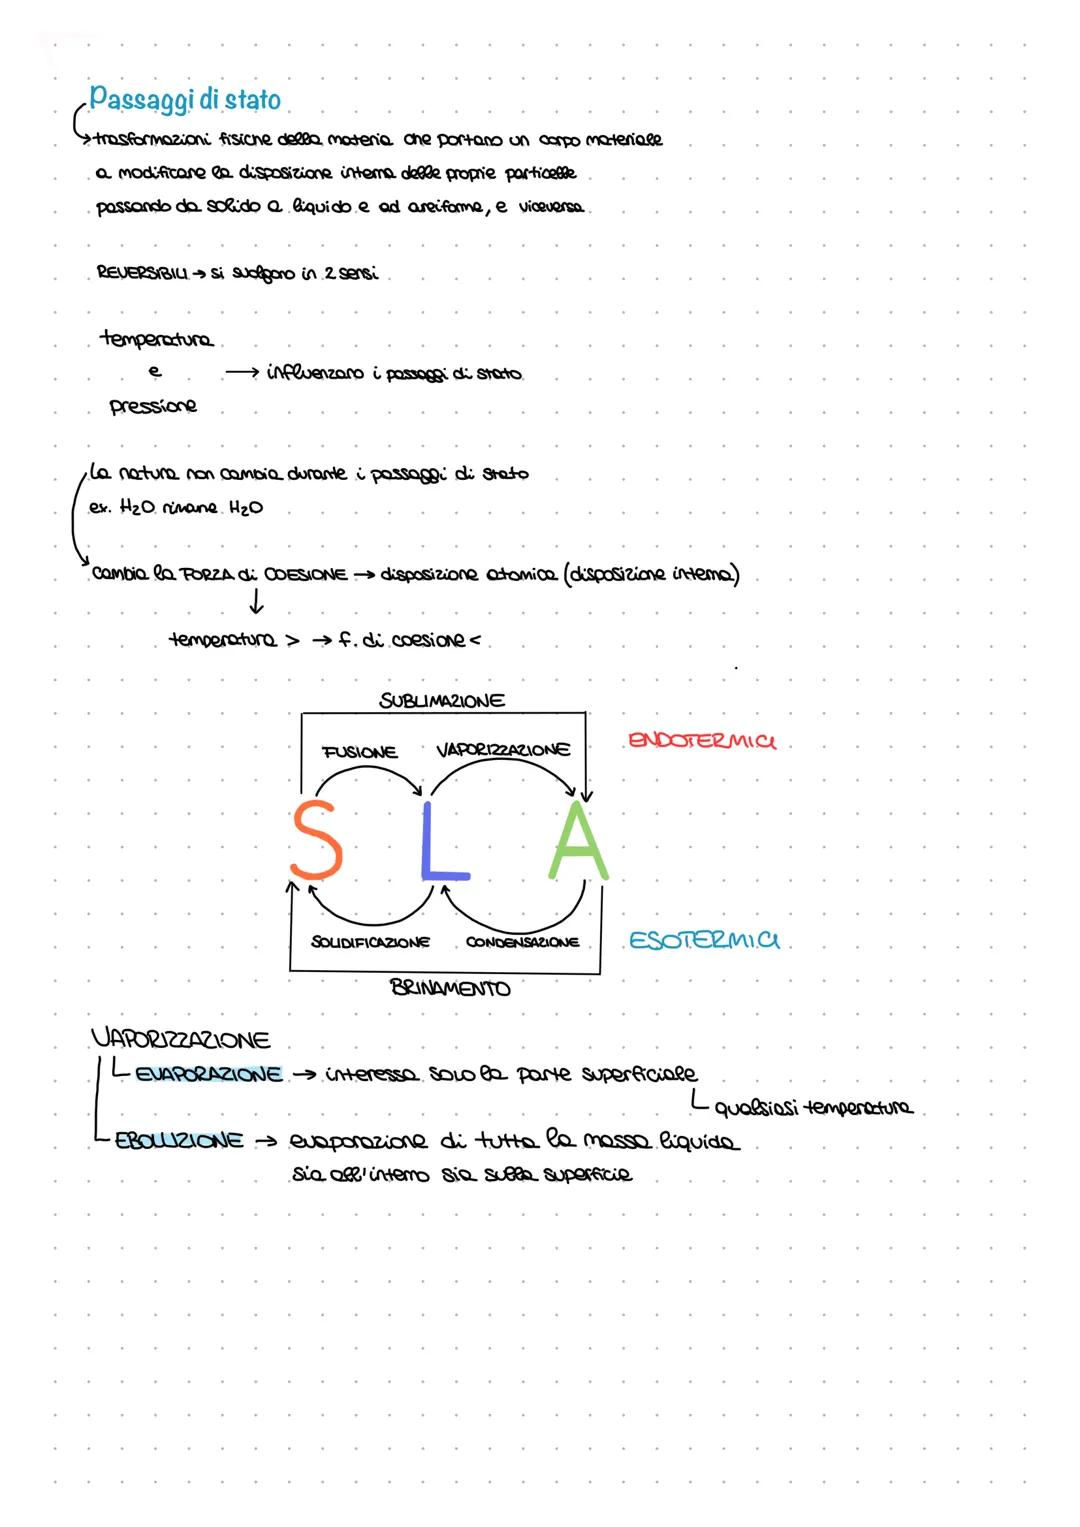 Passaggi di stato
→ trasformazioni fisiche della materia che portano un corpo materiale
a modificare la disposizione interna delle proprie particelle
passando da solido a liquido e ad areiforme, e viceversa
REVERSIBILI → si svolgono in 2 sensi
temperatura
e → influenzano i passaggi di stato
pressione
la natura non cambia durante i passaggi di stato
ex. H₂O rimane H₂O
cambia la FORZA di COESIONE → disposizione atomica (disposizione interna)
↓
temperatura > → f. di coesione <
SUBLIMAZIONE
ENDOTERMICI
FUSIONE VAPORIZZAZIONE
S L A
SOLIDIFICAZIONE CONDENSAZIONE ESOTERMICI
BRINAMENTO
VAPORIZZAZIONE
EVAPORAZIONE → interessa solo la parte superficiale
qualsiasi temperatura
EBOLLIZIONE → evaporazione di tutta la massa liquida
sia all'interno sia sulla superficie